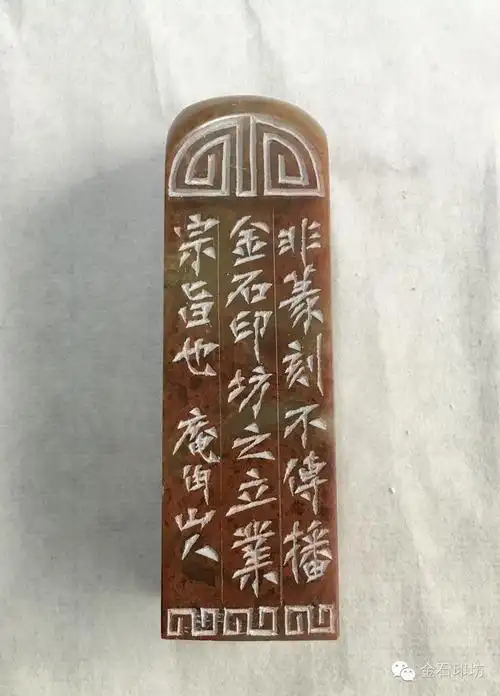 非篆刻不傳播
金石印坊之立業
宗旨也 庵由山人
金石印坊